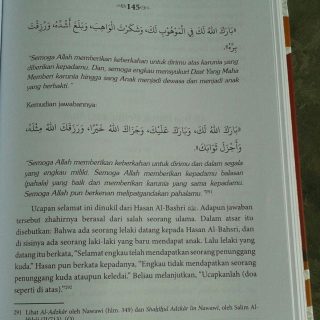 145
«بَارَكَ اللهُ لَكَ فِي الْمَوْهُوْبِ لَكَ، وَشَكَرْتَ الْوَاهِبَ، وَبَلَغَ أَشُدَّهُ، وَرُزِقْتَ
بِرَّهُ»
"Semoga Allah memberikan keberkahan untuk dirimu atas karunia yang
diberikan kepadamu. Dan, semoga engkau mensyukuri Dzat Yang Maha
Memberi karunia hingga sang Anak menjadi dewasa dan menjadi anak
yang berbakti."
Kemudian jawabannya:
«بَارَكَ اللهُ لَكَ، وَبَارَكَ عَلَيْكَ، وَجَزَاكَ اللهُ خَيْرًا، وَرَزَقَكَ اللهُ مِثْلَهُ،
وَأَجْزَلَ ثَوَابَكَ»
"Semoga Allah memberikan keberkahan untuk dirimu dan dalam segala
yang engkau miliki. Semoga Allah memberikan kepadamu balasan
(pahala) yang baik dan memberikan karunia yang sama kepadamu.
Semoga Allah pun berkenan melipatgandakan pahalamu."
Ucapan selamat ini dinukil dari Hasan Al-Bashri Adapun jawaban
tersebut zhahirnya berasal dari salah seorang ulama. Dalam atsar itu
disebutkan: Bahwa ada seorang lelaki datang kepada Hasan Al-Bashri, dan
di sisinya ada seorang laki-laki yang baru mendapat anak. Lalu lelaki yang
datang itu berkata, "Selamat engkau telah mendapatkan seorang penunggang
kuda." Hasan pun berkata kepadanya, "Engkau tidak mendapatkan seorang
penunggang kuda ataupun keledai." Beliau melanjutkan, "Ucapkanlah (doa
seperti di atas)."
291 Lihat Al-Adzkâr oleh Nawawi (hlm. 349) dan Shahîhul Adzkâr lin Nawawi, oleh Salim Al-